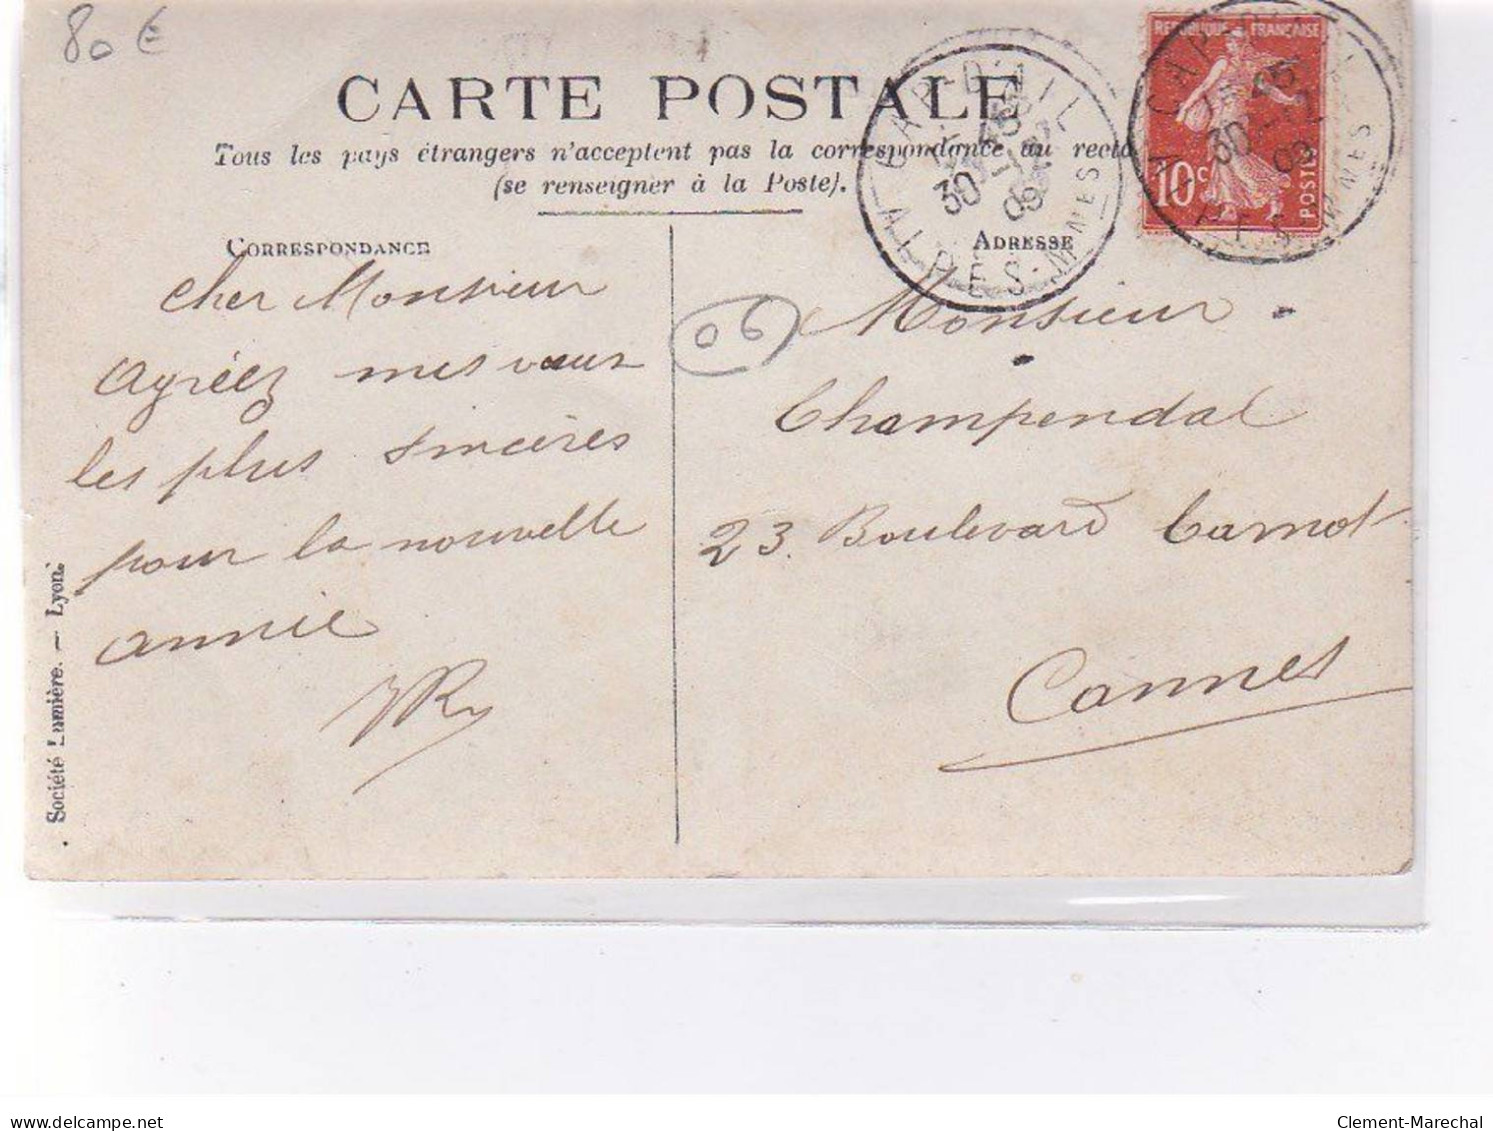 80 €
CARTE POSTALE
Tous les pays étrangers n'acceptent pas la correspondance au recto
(se renseigner à la Poste).
CORRESPONDANCE
cher Monsieur
agréez mes vœux
les plus sincères
pour la nouvelle
année
ADRESSE
Monsieur
Champendal
23. Boulevard Carnot
Cannes
06
REPUBLIQUE FRANÇAISE
10c
POSTES
CAP-D'AIL
30-12
09
ALPES-MMES
CAP-D'AIL
30-12
09
ALPES-MMES
Société Lumière. — Lyon.
www.delcampe.net
Clement-Marechal